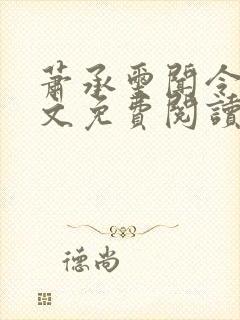 蕭承墨聞令
文免費閱讀
德尚